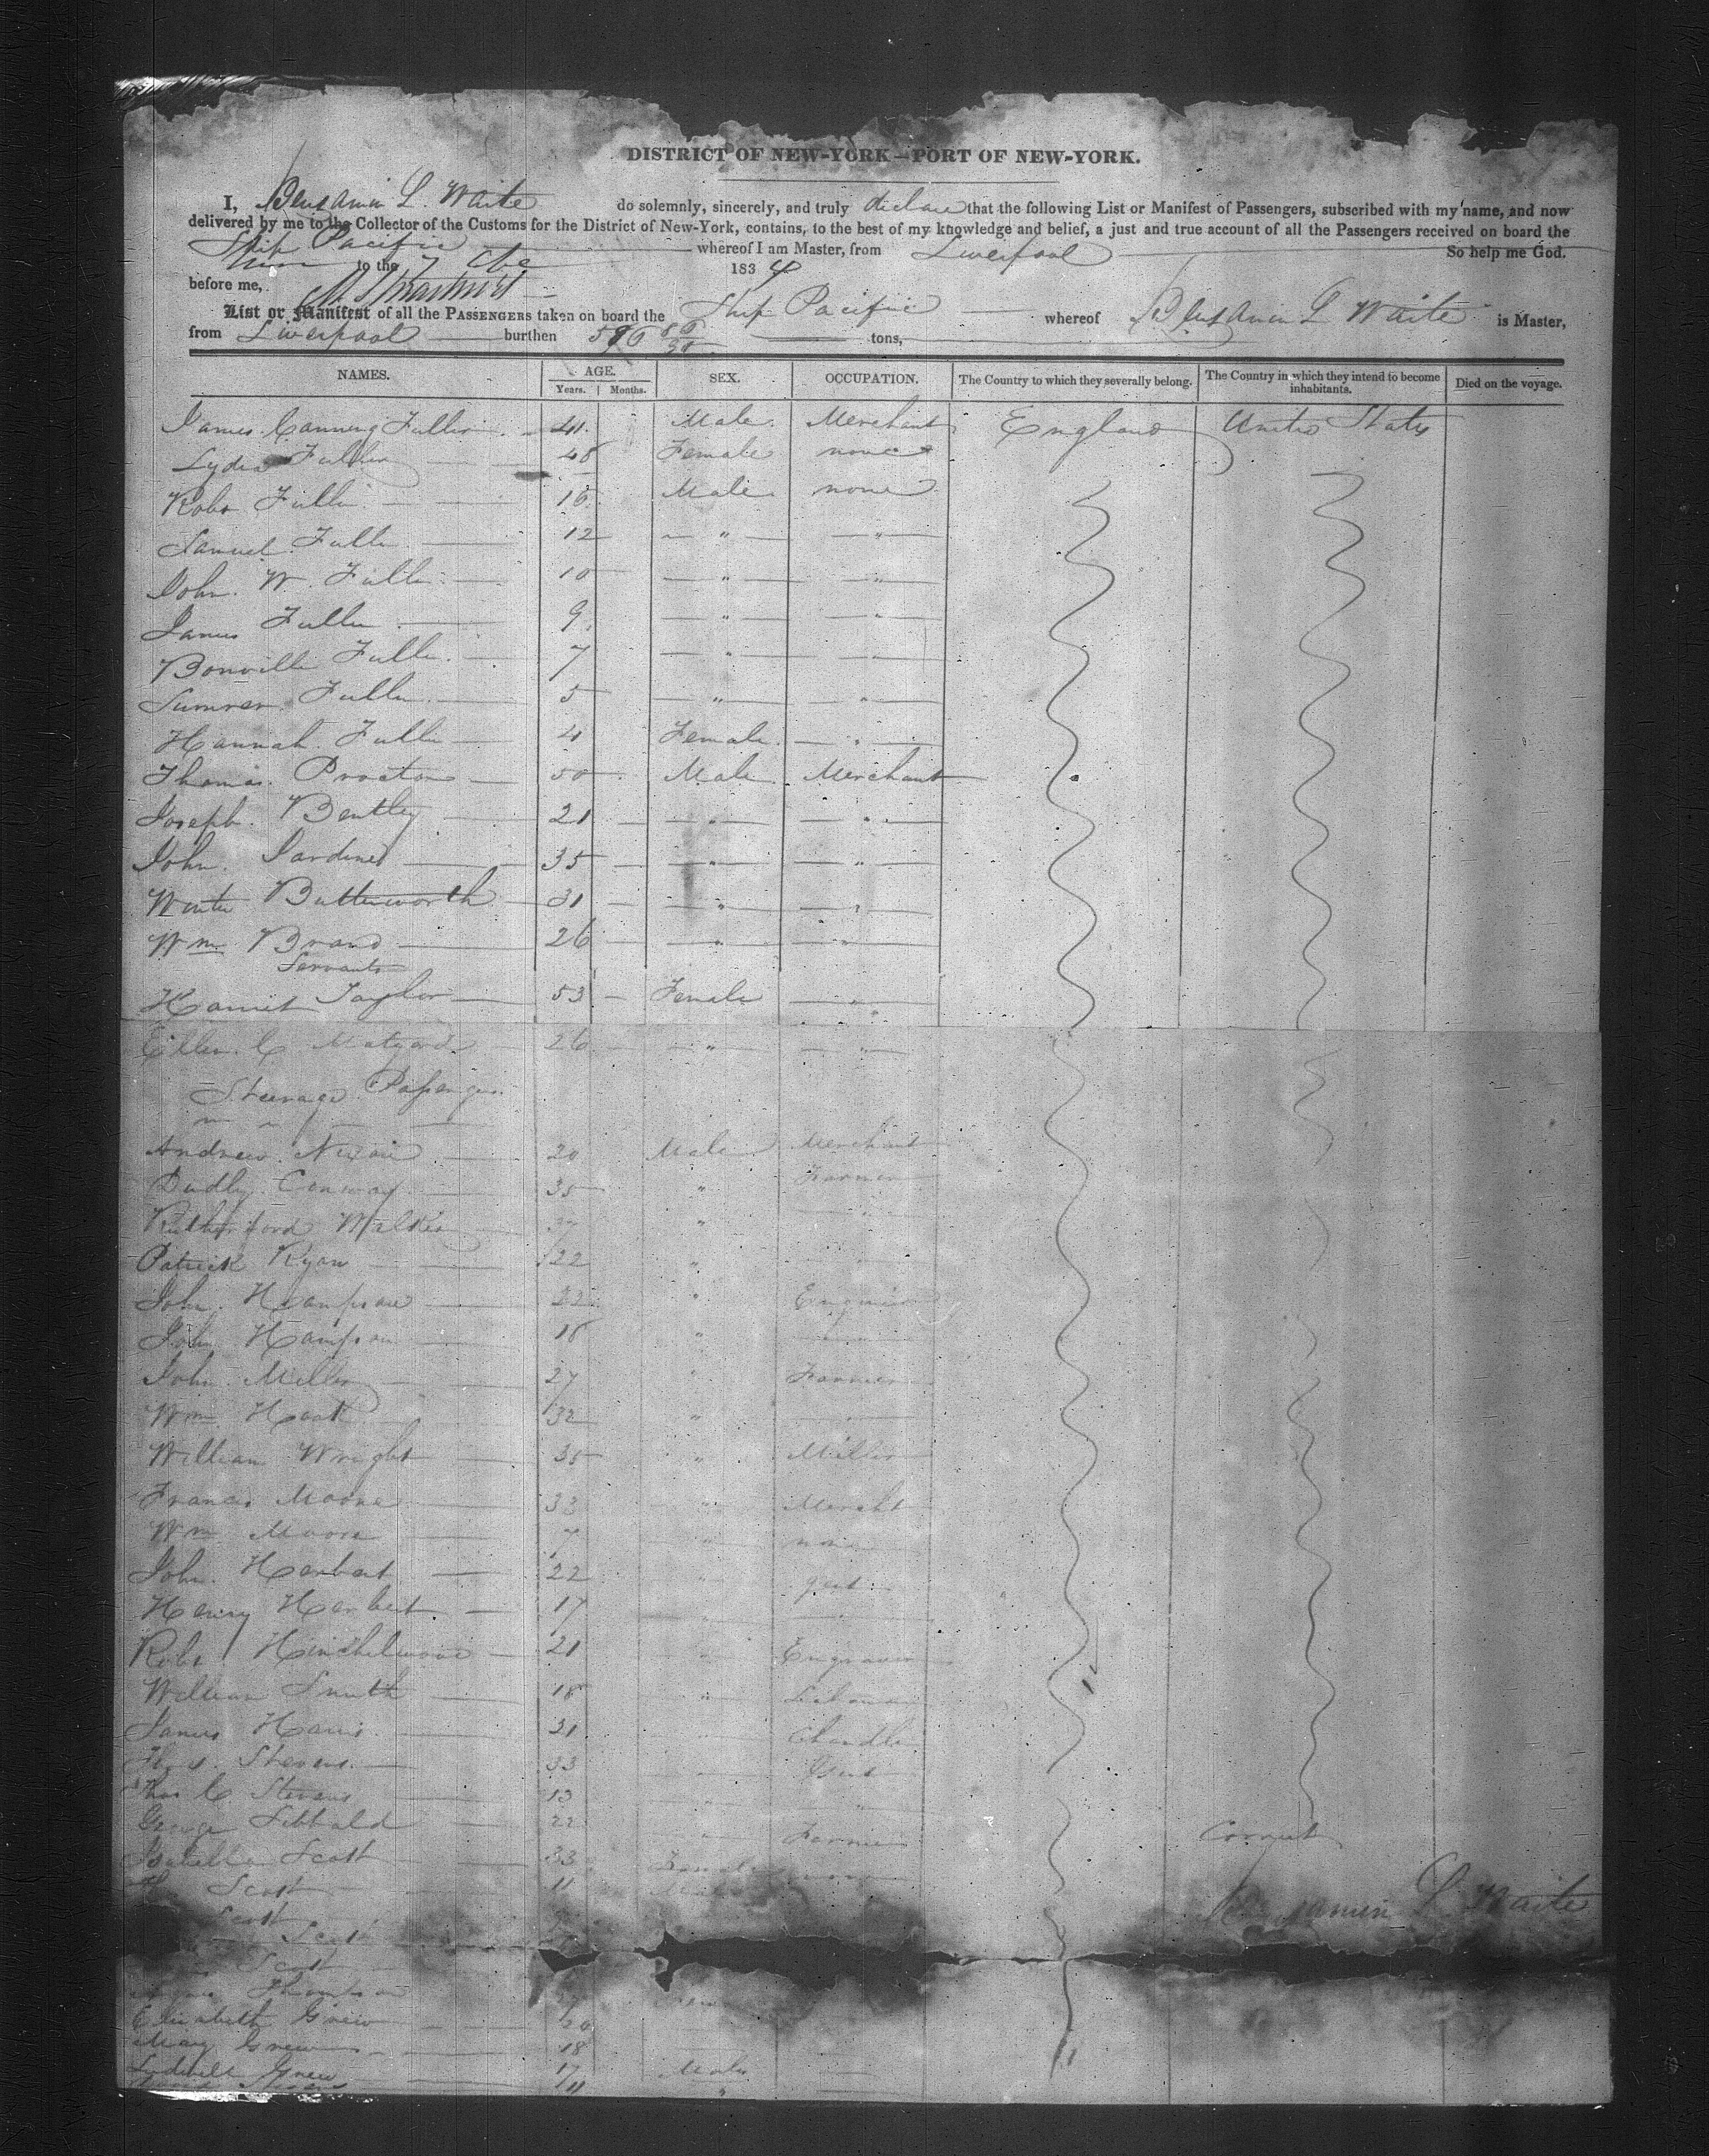 DISTRICT OF NEW-YORK—PORT OF NEW-YORK.
I, Benjamin L. Waite do solemnly, sincerely, and truly declare that the following List or Manifest of Passengers, subscribed with my name, and now
delivered by me to the Collector of the Customs for the District of New-York, contains, to the best of my knowledge and belief, a just and true account of all the Passengers received on board the
Ship Pacific whereof I am Master, from Liverpool So help me God.
to the 7 1834
before me,
List or Manifest of all the PASSENGERS taken on board the Ship Pacific whereof Benjamin L Waite is Master,
from Liverpool burthen tons,
NAMES. AGE. SEX. OCCUPATION. The Country to which they severally belong. The Country in which they intend to become inhabitants. Died on the voyage.
Years. Months.
James Canning Fuller 41 Male Merchant England United States
Lydia Fuller 48 Female none
Robt Fuller 16 Male none
Samuel Fuller 12 " "
John W. Fuller 10 " "
James Fuller 9 " "
Bonville Fuller 7 " "
Sumner Fuller 5 " "
Hannah Fuller 4 Female "
Thomas Procton 50 Male Merchant
Joseph Bentley 21 " "
John Jardine 35 " "
Butterworth 31 " "
Wm Brand 26 " "
Servants
Harriet Taylor 53 Female "
Ellen C 26 " "
Steerage Passengers
Andrew 20 Male Merchant
Dudly Conway 35 " Farmer
Rutherford Walker 37 " "
Patrick Ryan 22 "
John Hampson 22 "
John Hampson 18 "
John Miller 27 " Farmer
Wm 32 "
William Wright 35 " Miller
Francis Moore 33 " Mercht
Wm Moore 7 " none
John Herbert 22 " gent
Henry Herbert 17 "
Robt Hinchelwood 21 " Engraver
William Smith 18 "
James Harris 21 Chandler
Thos. Stevens 33 Gent
Thos C. Stevens 13
George Sibbald 22 " Farmer
Correct
Isabella Scott 33 Female none
Scott 11 Male
Benjamin L. Waite
Scott
Scott
Scott
Thompson
Elizabeth Grew 20
Mary Grew 18
Grew 17 Male
11 "